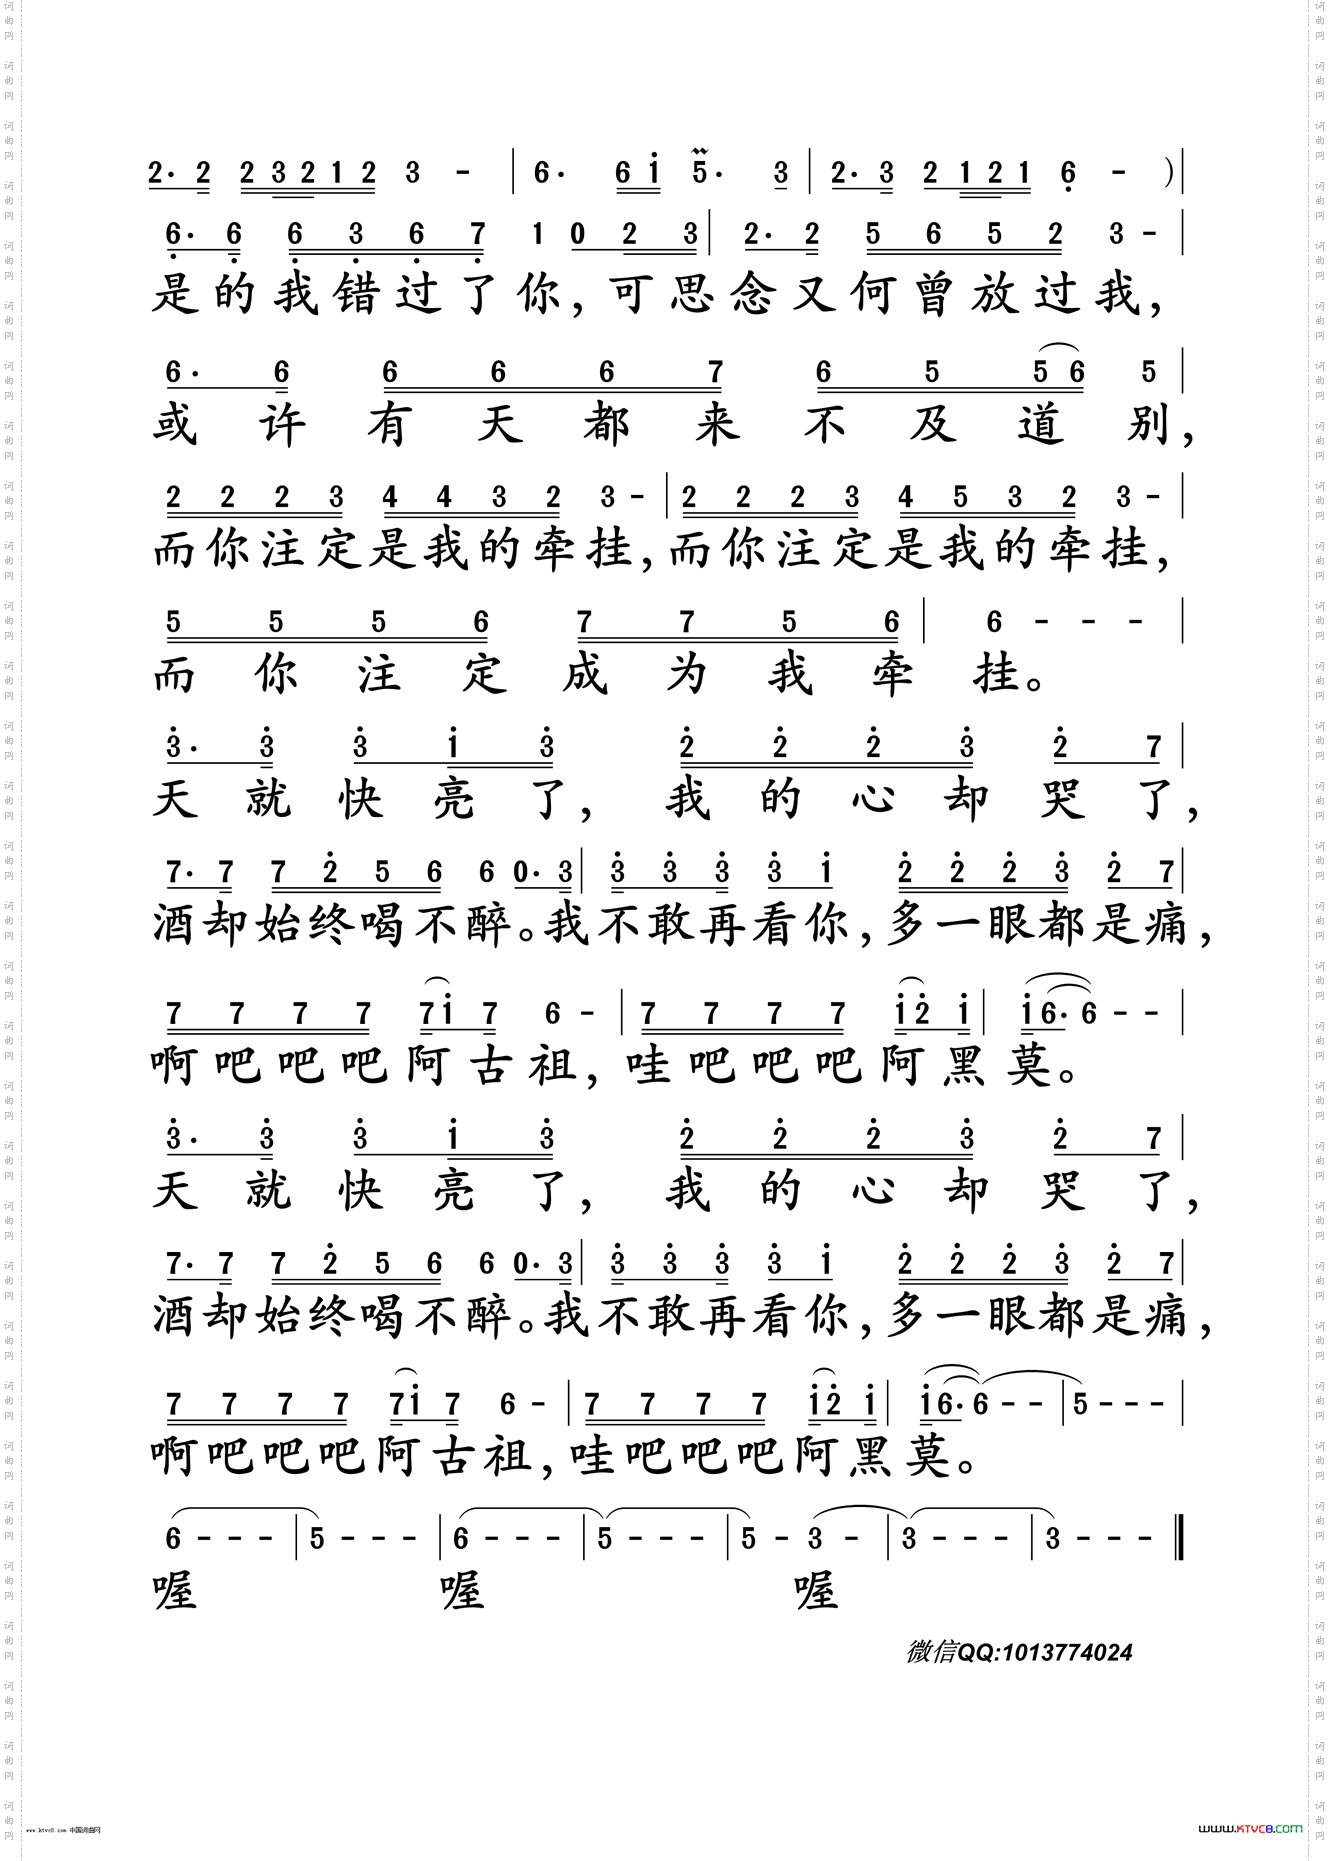 2· 2 2 3 2 1 2 3 - | 6· 6 1 5· 3 | 2· 3 2 1 2 1 6 - ) |
6· 6 6 3 6 7 1 0 2 3 | 2· 2 5 6 5 2 3 - |
是的我错过了你,可思念又何曾放过我,
6· 6 6 6 6 7 6 5 5 6 5 |
或许有天都来不及道别,
2 2 2 3 4 4 3 2 3 - | 2 2 2 3 4 5 3 2 3 - |
而你注定是我的牵挂,而你注定是我的牵挂,
5 5 5 6 7 7 5 6 | 6 - - - |
而你注定成为我牵挂。
3· 3 3 1 3 2 2 2 3 2 7 |
天就快亮了,我的心却哭了,
7· 7 7 2 5 6 6 0· 3 | 3 3 3 3 1 2 2 2 3 2 7 |
酒却始终喝不醉。我不敢再看你,多一眼都是痛,
7 7 7 7 7 1 7 6 - | 7 7 7 7 1 2 1 | 1 6· 6 - - |
啊吧吧吧阿古祖,哇吧吧吧阿黑莫。
3· 3 3 1 3 2 2 2 3 2 7 |
天就快亮了,我的心却哭了,
7· 7 7 2 5 6 6 0· 3 | 3 3 3 3 1 2 2 2 3 2 7 |
酒却始终喝不醉。我不敢再看你,多一眼都是痛,
7 7 7 7 7 1 7 6 - | 7 7 7 7 1 2 1 | 1 6· 6 - - | 5 - - - |
啊吧吧吧阿古祖,哇吧吧吧阿黑莫。
6 - - - | 5 - - - | 6 - - - | 5 - - - | 5 - 3 - | 3 - - - | 3 - - - ‖
喔 喔 喔
微信QQ:1013774024
www.ktvc8.com 中国词曲网
WWW.KTVC8.COM